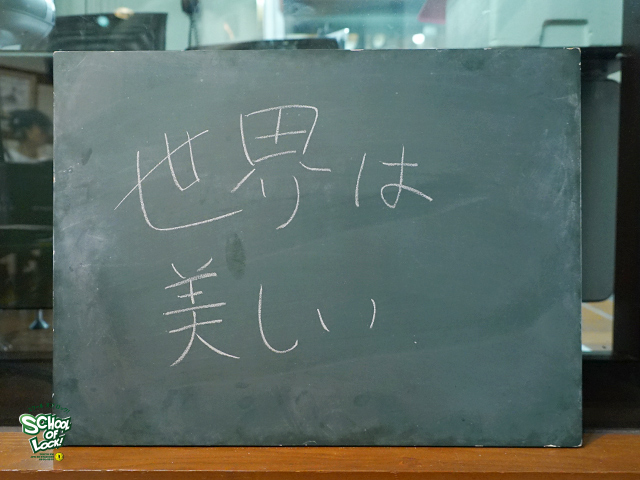 世界は
美しい
SCHOOL
OF
LOCK!